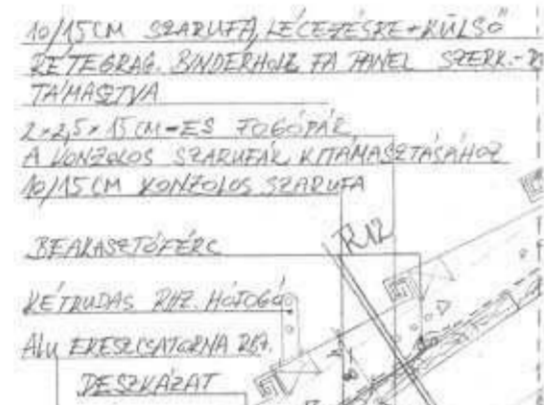 10/15CM SZARUFA, LÉCEZÉSRE + KÜLSŐ
RÉTEGRAG. BINDERHOLZ FA PANEL SZERK.-
TÁMASZTVA
2×2,5×15CM-ES FOGÓPÁR
A KONZOLOS SZARUFÁK KITÁMASZTÁSÁHOZ
10/15CM KONZOLOS SZARUFA
BEAKASZTÓFÉRC
KÉTRUDAS RHZ. HÓFOGÓ
ALU ERESZCSATORNA
DESZKÁZAT